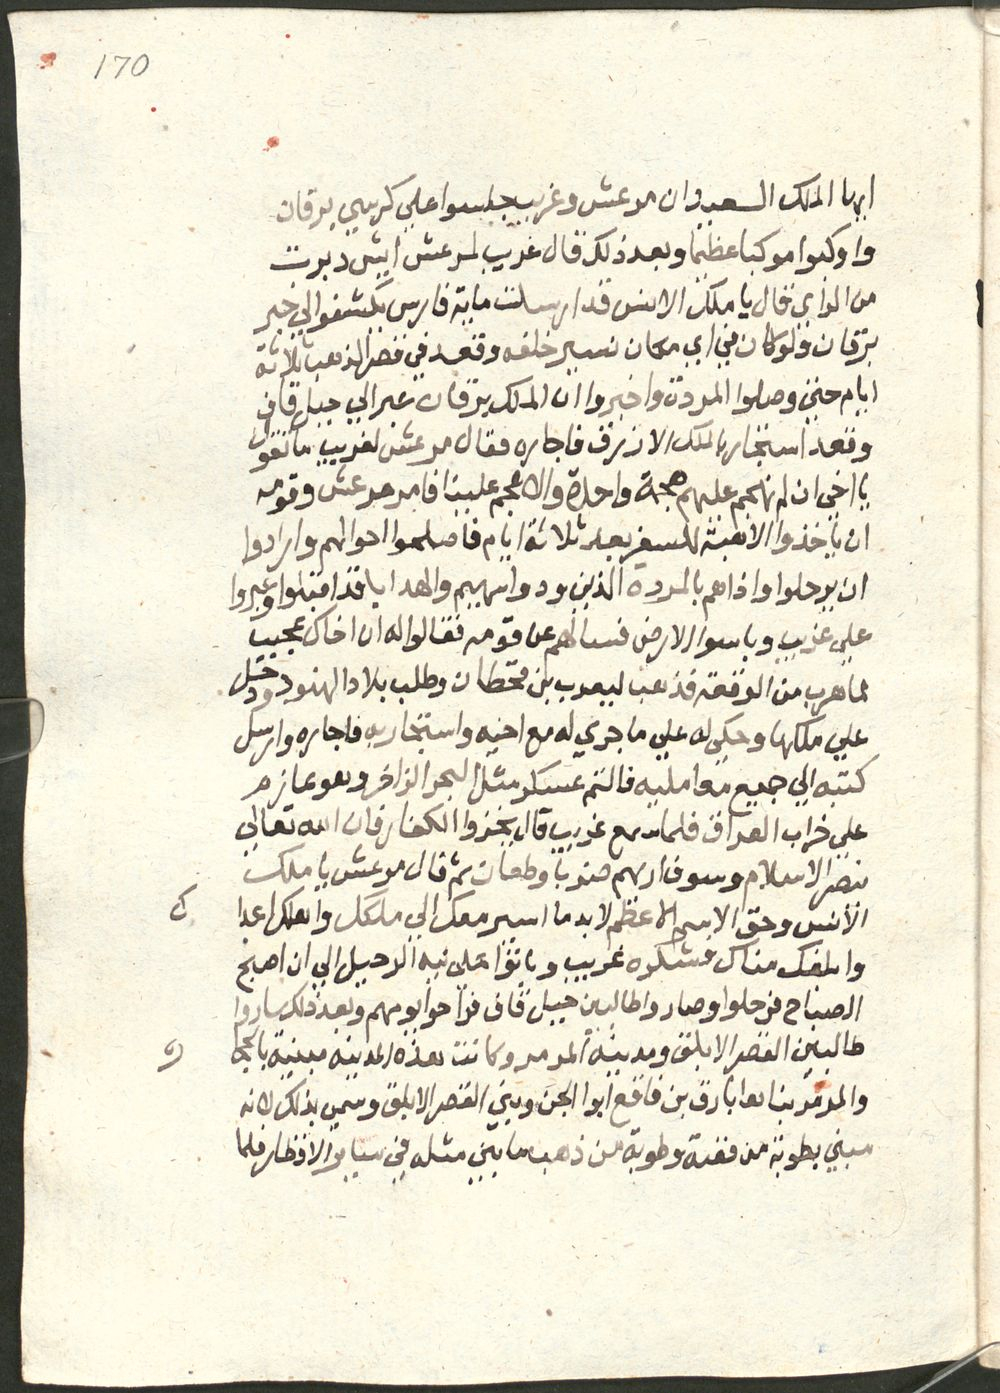 170
ايها الملك السعيد وان مرعش وغريب جلسوا علي كرسي برقان
واوكبوا موكبا عظيما وبعد ذلك قال غريب لمرعش ايش دبرت
من الراي فقال يا ملك الانس قد ارسلت ماية فارس يكشفوا لي خبر
برقان ولو كان في اي مكان نسير خلفه وقعد في قصر الذهب ثلاثة
ايام حتي وصلوا المردة واخبروا ان الملك برقان عبر الي جبل قاف
وقعد استجار بالملك الازرق فاجاره فقال مرعش لغريب ما تقول
يا اخي ان لم نهجم عليهم هجمة واحدة والا هجم علينا فامر مرعش وقومه
ان ياخذوا الاهبة للسفر بعد ثلاثة ايام فاصلحوا احوالهم وارادوا
ان يرحلوا واذا هم بالمردة الذين ودوا سهيم والهدايا قد اقبلوا وعبروا
علي غريب وباسوا الارض فسالهم عن قومه فقالوا له ان اخاك عجيب
لما هرب من الوقعه فذهب ليعرب بن قحطان وطلب بلاد الهنود ودخل
علي ملكها وحكي له علي ما جري له مع اخيه واستجار به فاجاره وارسل
كتبه الي جميع معامليه فالتم عسكر مثل البحر الزاخر وهو عازم
علي خراب العراق فلما سمع غريب قال يخزوا الكفار فان الله تعالي
ينصر الاسلام وسوف اريهم ضربا وطعان ثم قال مرعش يا ملك
الانس وحق الاسم الاعظم لا بد ما اسير معك الي ملكك واهلك اعداك
وابلغك مناك فشكره غريب وباتوا علي نيه الرحيل الي ان اصبح
الصباح فرحلوا وصاروا طالبين جبل قاف فراحوا يومهم وبعد ذلك ساروا
طالبين القصر الابلق ومدينة المرمر وكانت هذه المدينه مبنية بالحجر
والمرمر بناها بارق بن فاقع ابوا الجن وبني القصر الابلق وسمي بذلك لانه
مبني بطوبة من فضة وطوبة من ذهب ما بني مثله في ساير الاقطار فلما